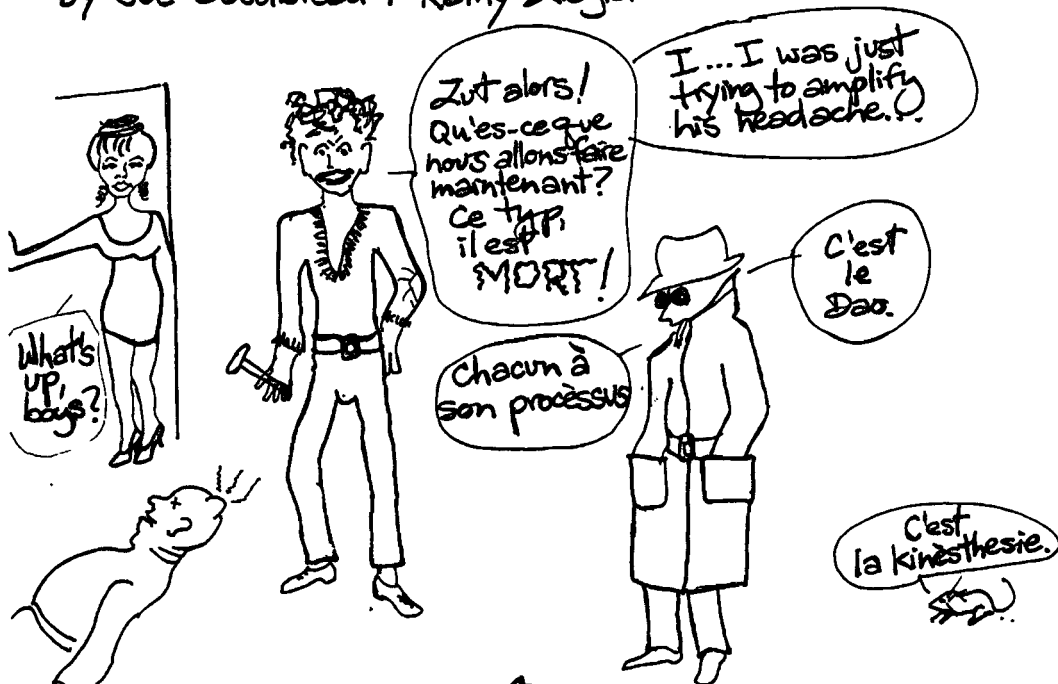 by Joe
Zut alors!
Qu'es-ce que
nous allons faire
maintenant?
Ce typ,
il est
MORT!
I...I was just
trying to amplify
his headache...
C'est
le
Dao.
Chacun à
son procèssus
What's
up,
boys?
C'est
la kinèsthesie.